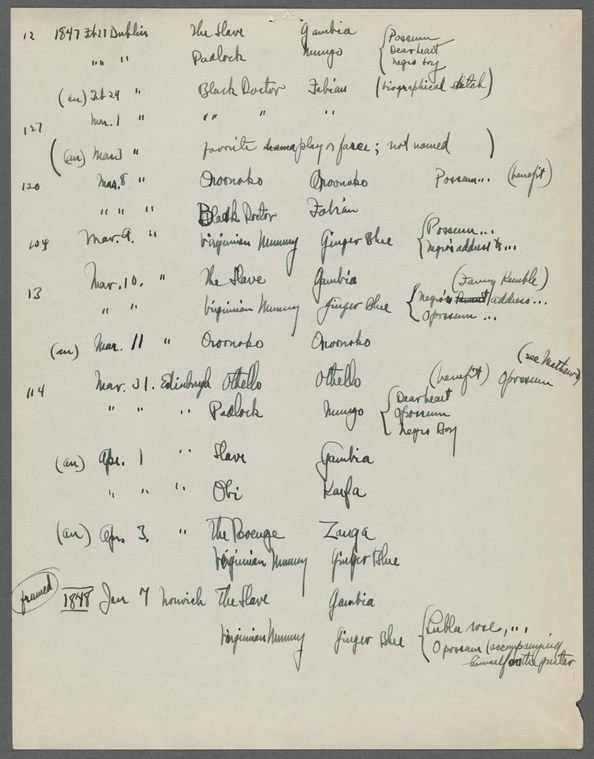 12 1847 Feb 27 Dublin The Slave Gambia { Possum
" " " Padlock Mungo Dearheart
Negro boy
(an) Feb 29 " Black Doctor Fabian (biographical sketch)
127 Mar. 1 " " " " " "
(an) Mar 3 " favorite play or farce; not named )
120 Mar. 8 " Oroonoko Oroonoko Possum... (benefit)
" " " Black Doctor Fabian
104 Mar. 9. " Virginian Mummy Ginger Blue { Possum...
Negro's address ...
13 Mar. 10. " The Slave Gambia (Fanny Kemble)
" " Virginian Mummy Ginger Blue { Negro's address ...
Opossum ...
(an) Mar. 11 " Oroonoko Oroonoko
(see Mathews)
114 Mar. 31. Edinburgh Othello Othello (benefit) Opossum
" " " Padlock Mungo { Dearheart
Opossum
Negro Boy
(an) Apr. 1 " Slave Gambia
" " " Obi Karfa
(an) Apr. 3. " The Revenge Zanga
Virginian Mummy Ginger Blue
framed 1848 Jan 7 Norwich The Slave Gambia
Virginian Mummy Ginger Blue { Lubla rose, "
Opossum (accompanying
himself on the guitar